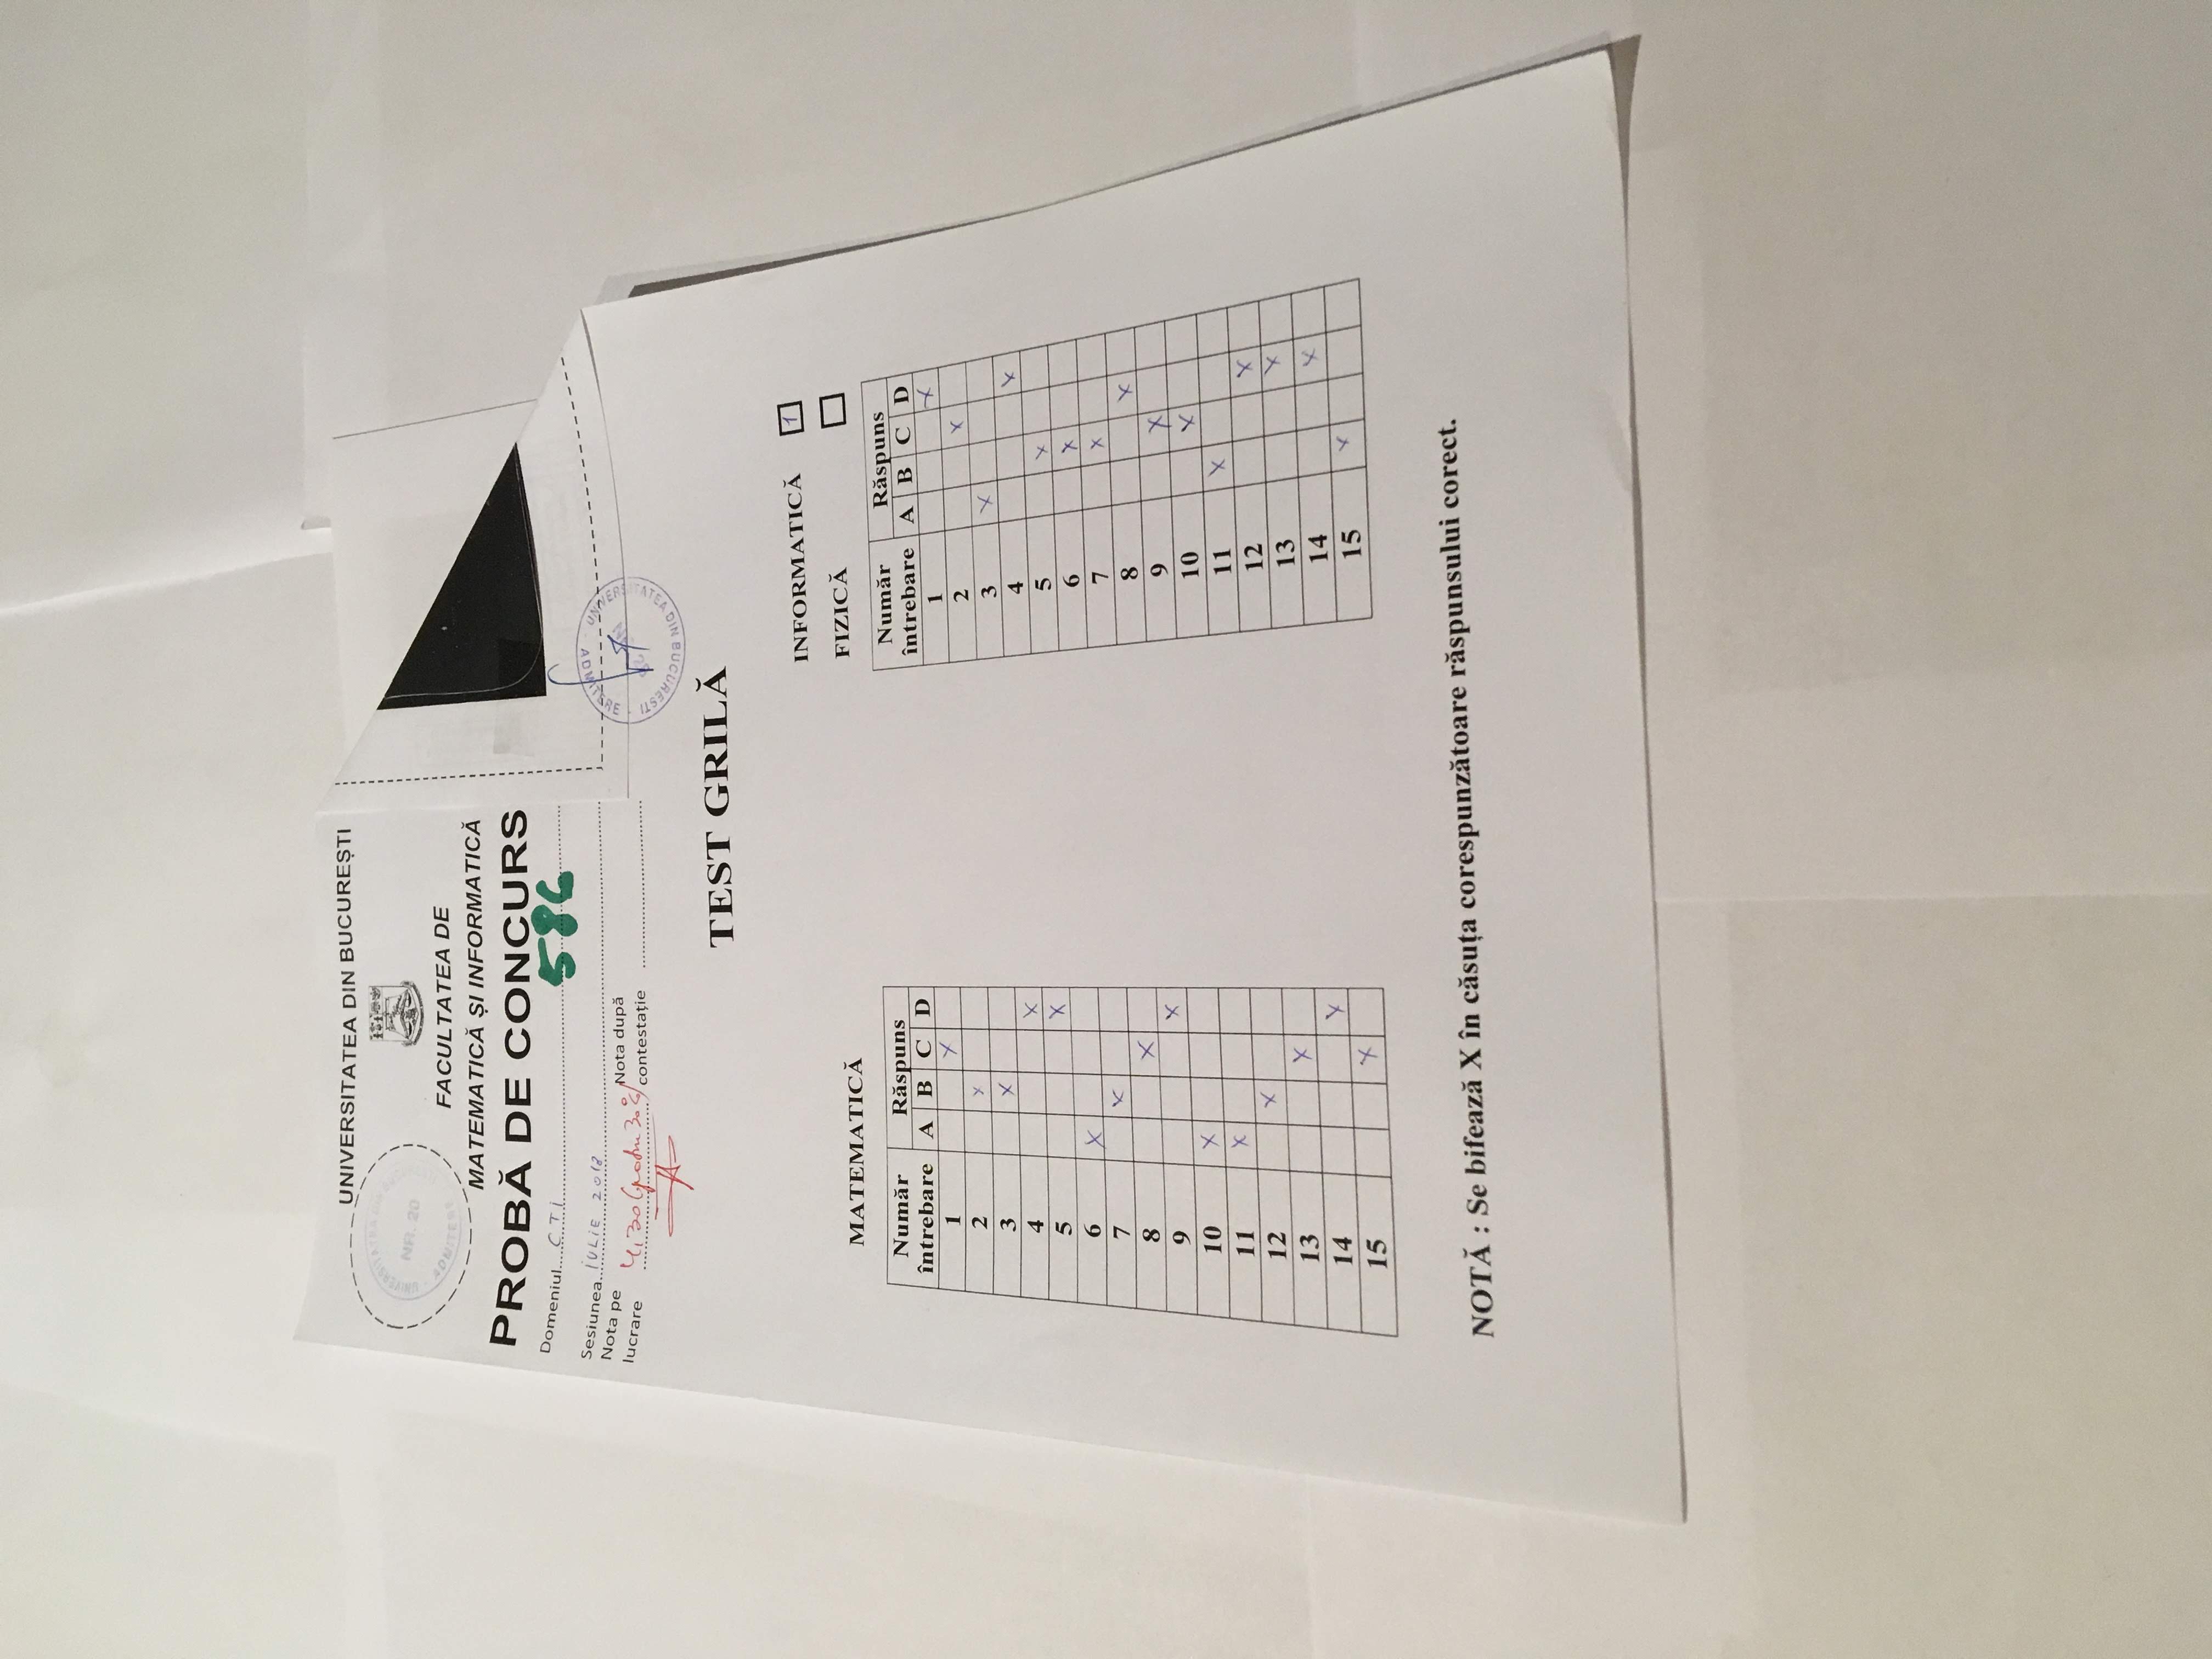 UNIVERSITATEA DIN BUCUREȘTI
NR. 20
ADMITERE
FACULTATEA DE
MATEMATICĂ ȘI INFORMATICĂ
PROBĂ DE CONCURS
Domeniul CTI
586
Sesiunea IULIE 2018
Nota pe lucrare 4,30
Nota după contestație
UNIVERSITATEA DIN BUCURESTI - ADMITERE -
TEST GRILĂ
INFORMATICĂ 1
FIZICĂ
MATEMATICĂ
Număr întrebare Răspuns
A B C D
1 X
2 X
3 X
4 X
5 X
6 X
7 X
8 X
9 X
10 X
11 X
12 X
13 X
14 X
15 X
Număr întrebare Răspuns
A B C D
1 X
2 X
3 X
4 X
5 X
6 X
7 X
8 X
9 X
10 X
11 X
12 X
13 X
14 X
15 X
NOTĂ : Se bifează X în căsuța corespunzătoare răspunsului corect.